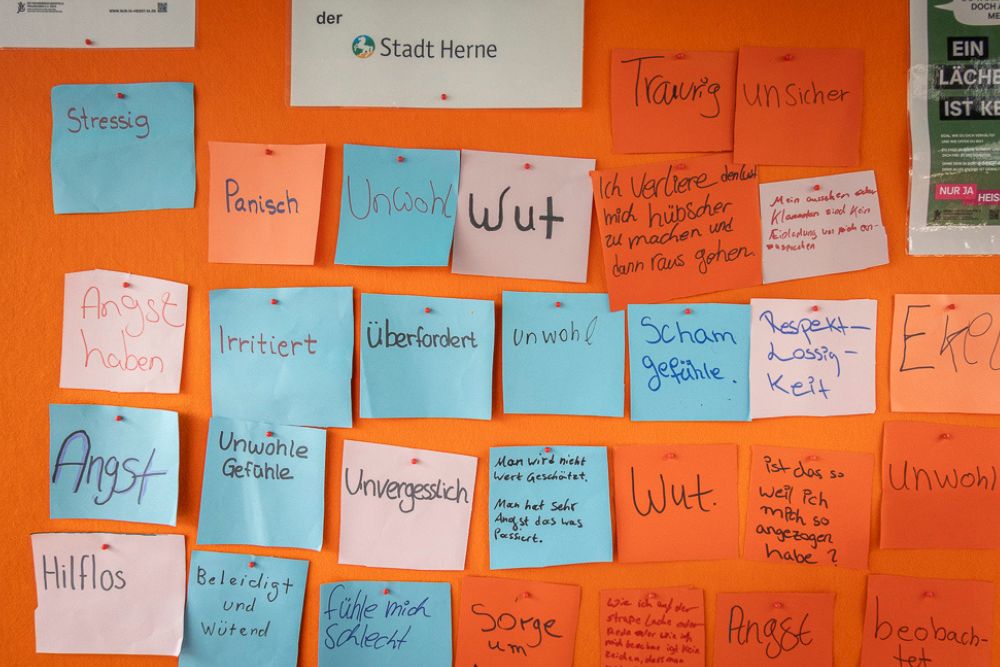 WWW.NUR-JA-HEISST-JA.DE
der
Stadt Herne
EIN
LÄCHE
IST KE
NUR JA
HEIS
Stressig
Panisch
Unwohl
Wut
Traurig
unsicher
Ich verliere den Lust
mich hübscher
zu machen und
dann raus gehen.
Mein aussehen oder
Klamotten sind Kein
Einladung um mich an-
zusprechen
Angst
haben
Irritiert
Überfordert
unwohl
Scham
gefühle.
Respekt-
Lossig-
Keit
Ekel
Angst
Unwohle
Gefühle
Unvergesslich
Man wird nicht
Wert Geschätzt.
Man hat sehr
Angst das was
Passiert.
Wut.
ist das so
weil ich
mich so
angezogen
habe ?
Unwohl
Hilflos
Beleidigt
und
Wütend
fühle mich
schlecht
Sorge
um
Wie ich auf der
straße Lache oder
Rede oder wie ich
mich bewege ist Kein
zeichen, dass man
Angst
beobach-
tet